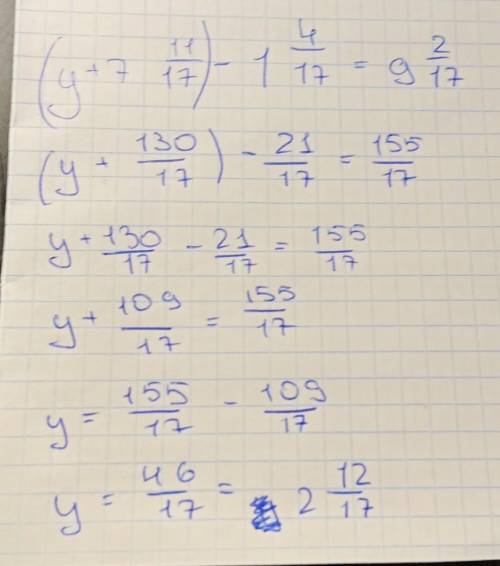 (y + 7 11/17) - 1 4/17 = 9 2/17
(y + 130/17) - 21/17 = 155/17
y + 130/17 - 21/17 = 155/17
y + 109/17 = 155/17
y = 155/17 - 109/17
y = 46/17 = 2 12/17